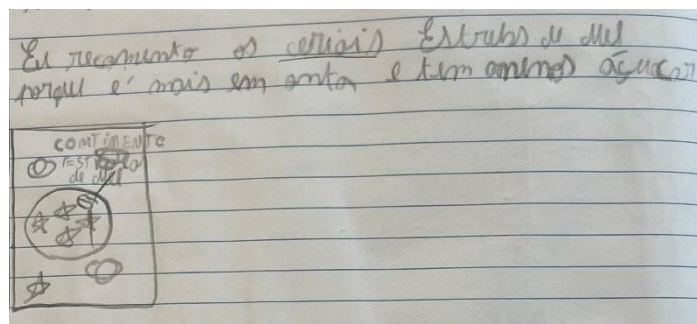 Eu recomento os ceriais Estrelas de Mel
porque é mais em conta e tem omenos áçucar
CONTINENTE
ESTRELA
de Mel